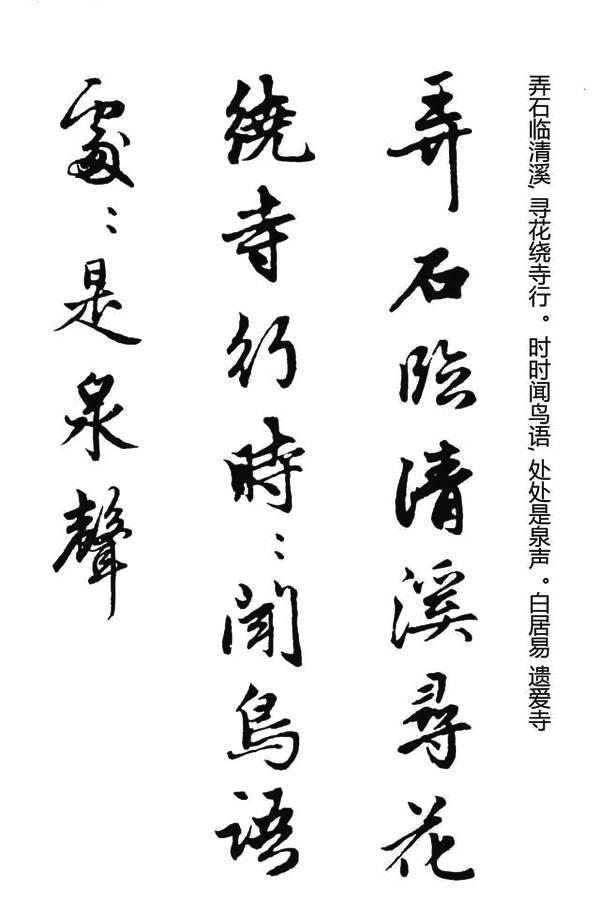 弄石临清溪,寻花绕寺行。时时闻鸟语,处处是泉声。白居易 遗爱寺
弄石臨清溪尋花
繞寺行時:聞鳥語
處:是泉聲